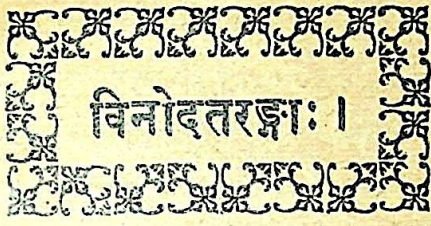 विनोदतरङ्गाः ।